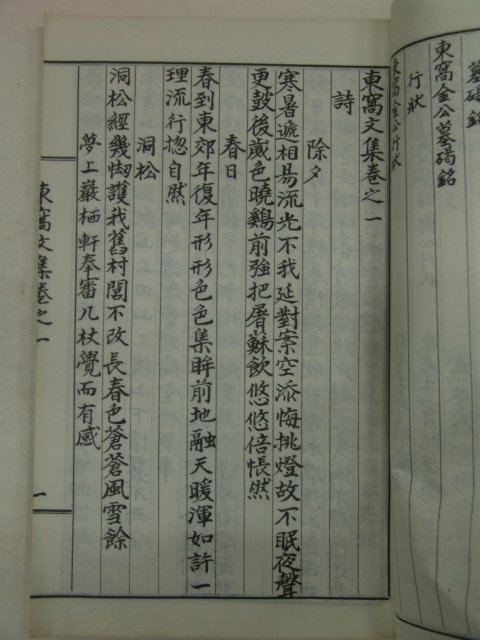 墓碣銘
東窩金公墓碣銘
行狀
東窩金公行狀
東窩文集卷之一
詩
除夕
寒暑遞相易流光不我延對案空添悔挑燈故不眠夜聲
更鼓後歲色曉鷄前強把屠蘇飮悠悠倍悵然
春日
春到東郊年復年形形色色集眸前地融天暖渾如許一
理流行揔自然
洞松
洞松經幾㤼護我舊村閭不改長春色蒼蒼風雪餘
夢上巖栖軒奉審几杖覺而有感
東窩文集卷之一
一